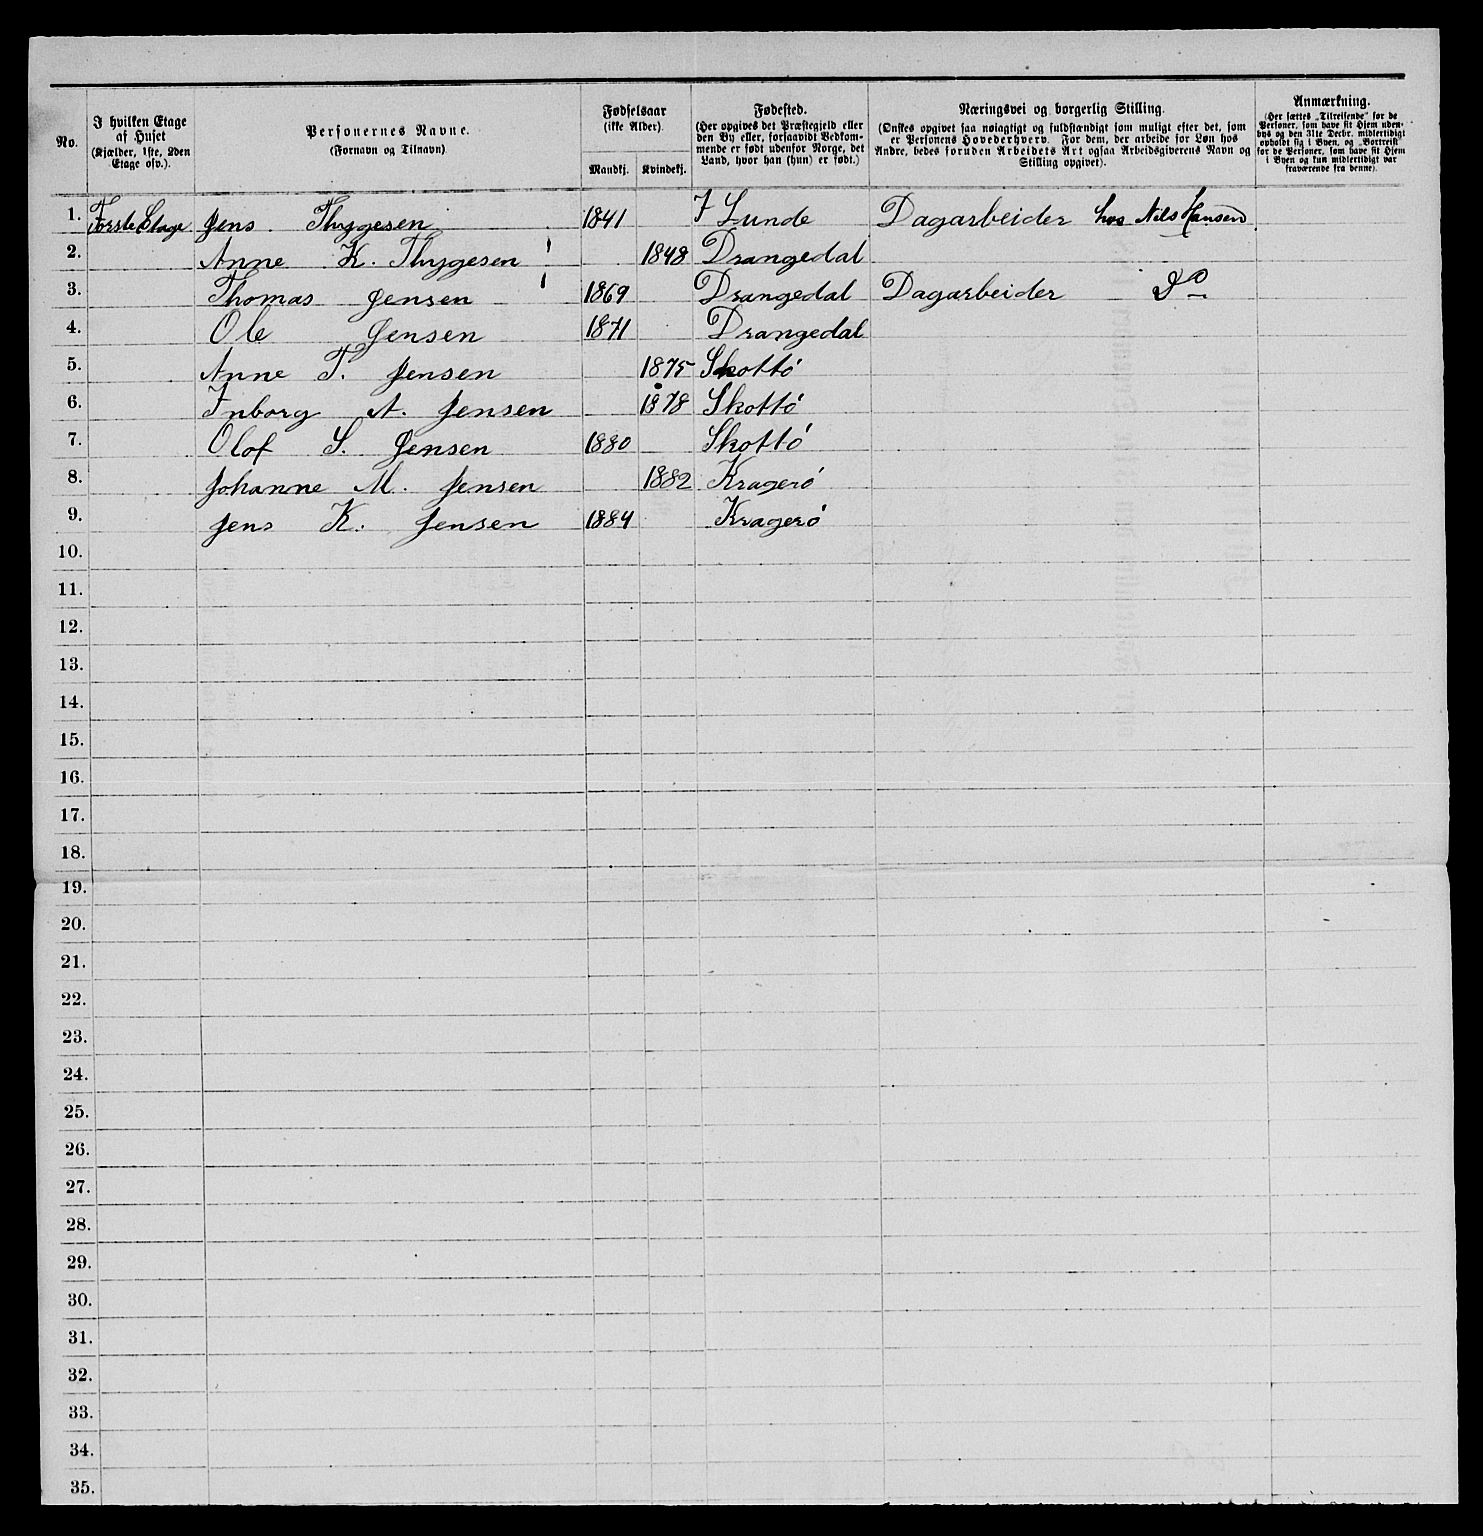 No.
I hvilken Etage
af Huset
(Kjælder, 1ste, 2den
Etage osv.)
Personernes Navne.
(Fornavn og Tilnavn)
Fødselsaar
(ikke Alder).
Mandkj. Kvindekj.
Fødested.
(Her opgives det Præstegjeld eller
den By eller, forsaavidt Vedkom-
mende er født udenfor Norge, det
Land, hvor han (hun) er født.)
Næringsvei og borgerlig Stilling.
(Ønskes opgivet saa nøiagtigt og fuldstændigt som muligt efter det, som
er Personens Hovederhverv. For dem, der arbeide for Løn hos
Andre, bedes foruden Arbeidets Art ogsaa Arbeidsgiverens Navn og
Stilling opgivet).
Anmærkning.
(Her sættes „Tilreisende“ for de
Personer, som have sit Hjem uden-
bys og den 31te Decbr. midlertidigt
opholdt sig i Byen, og „Bortreist“
for de Personer, som have sit Hjem
i Byen og kun midlertidigt var
fraværende fra denne).
1. Førsle Etage Jens Thygesen 1841 I Lunde Dagarbeider hos Nils Hansen
2. Anne K. Thygesen 1848 Drangedal
3. Thomas Jensen 1869 Drangedal Dagarbeider Do
4. Ole Jensen 1871 Drangedal
5. Anne T. Jensen 1875 Skottö
6. Inborg A. Jensen 1878 Skottö
7. Olof S. Jensen 1880 Skottö
8. Johanne M. Jensen 1882 Kragerö
9. Jens K. Jensen 1884 Kragerö
10.
11.
12.
13.
14.
15.
16.
17.
18.
19.
20.
21.
22.
23.
24.
25.
26.
27.
28.
29.
30.
31.
32.
33.
34.
35.